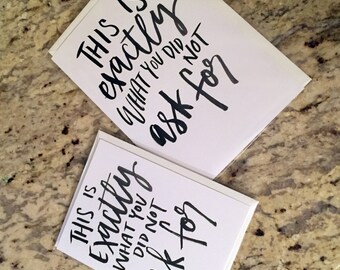 THIS IS
exactly
WHAT YOU DID
NOT
ask for
THIS IS
EXACTLY
WHAT YOU
DID NOT
ask for